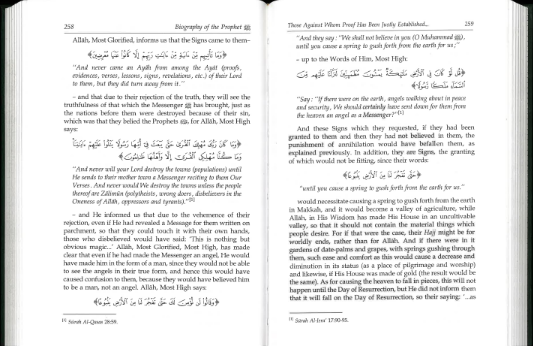 258
Biography of the Prophet ﷺ
Allâh, Most Glorified, informs us that the Signs came to them–
﴿وَمَا تَأْتِيهِم مِّنْ ءَايَةٍ مِّنْ ءَايَٰتِ رَبِّهِمْ إِلَّا كَانُوا۟ عَنْهَا مُعْرِضِينَ﴾
"And never came an Âyâh from among the Ayat (proofs,
evidences, verses, lessons, signs, revelations, etc.) of their Lord
to them, but they did turn away from it."
– and that due to their rejection of the truth, they will see the
truthfulness of that which the Messenger ﷺ has brought, just as
the nations before them were destroyed because of their sin,
which was that they belied the Prophets, for Allâh, Most High
says:
﴿وَمَا كَانَ رَبُّكَ مُهْلِكَ ٱلْقُرَىٰ حَتَّىٰ يَبْعَثَ فِىٓ أُمِّهَا رَسُولًا يَتْلُوا۟ عَلَيْهِمْ ءَايَٰتِنَا
وَمَا كُنَّا مُهْلِكِى ٱلْقُرَىٰٓ إِلَّا وَأَهْلُهَا ظَٰلِمُونَ﴾
"And never will your Lord destroy the towns (populations) until
He sends to their mother town a Messenger reciting to them Our
Verses. And never would We destroy the towns unless the people
thereof are Zâlimûn (polytheists, wrong doers, disbelievers in the
Oneness of Allâh, oppressors and tyrants)."[1]
– and He informed us that due to the vehemence of their
rejection, even if He had revealed a Message for them written on
parchment, so that they could touch it with their own hands,
those who disbelieved would have said: 'This is nothing but
obvious magic...' Allâh, Most Glorified, Most High, has made
clear that even if he had made the Messenger an angel, He would
have made him in the form of a man, since they would not be able
to see the angels in their true form, and hence this would have
caused confusion to them, because they would have believed him
to be a man, not an angel. Allâh, Most High says:
﴿وَقَالُوا۟ لَن نُّؤْمِنَ لَكَ حَتَّىٰ تَفْجُرَ لَنَا مِنَ ٱلْأَرْضِ يَنۢبُوعًا﴾
[1] Sûrah Al-Qasas 28:59.
Those Against Whom Proof Has Been Justly Established...
259
"And they say: "We shall not believe in you (O Muhammad ﷺ),
until you cause a spring to gush forth from the earth for us;"
– up to the Words of Him, Most High:
﴿قُل لَّوْ كَانَ فِى ٱلْأَرْضِ مَلَٰٓئِكَةٌ يَمْشُونَ مُطْمَئِنِّينَ لَنَزَّلْنَا عَلَيْهِم مِّنَ
ٱلسَّمَآءِ مَلَكًا رَّسُولًا﴾
"Say: "If there were on the earth, angels walking about in peace
and security, We should certainly have sent down for them from
the heaven an angel as a Messenger?"[1]
And these Signs which they requested, if they had been
granted to them and then they had not believed in them, the
punishment of annihilation would have befallen them, as
explained previously. In addition, they are Signs, the granting
of which would not be fitting, since their words:
﴿حَتَّىٰ تَفْجُرَ لَنَا مِنَ ٱلْأَرْضِ يَنۢبُوعًا﴾
"until you cause a spring to gush forth from the earth for us."
would necessitate causing a spring to gush forth from the earth
in Makkah, and it would become a valley of agriculture, while
Allâh, in His Wisdom has made His House in an uncultivable
valley, so that it should not contain the material things which
people desire. For if that were the case, their Hajj might be for
worldly ends, rather than for Allâh. And if there were in it
gardens of date-palms and grapes, with springs gushing through
them, such ease and comfort as this would cause a decrease and
diminution in its status (as a place of pilgrimage and worship)
and likewise, if His House was made of gold (the result would be
the same). As for causing the heaven to fall in pieces, this will not
happen until the Day of Resurrection, but He did not inform them
that it will fall on the Day of Resurrection, so their saying: '...as
[1] Sûrah Al-Isra' 17:90-95.